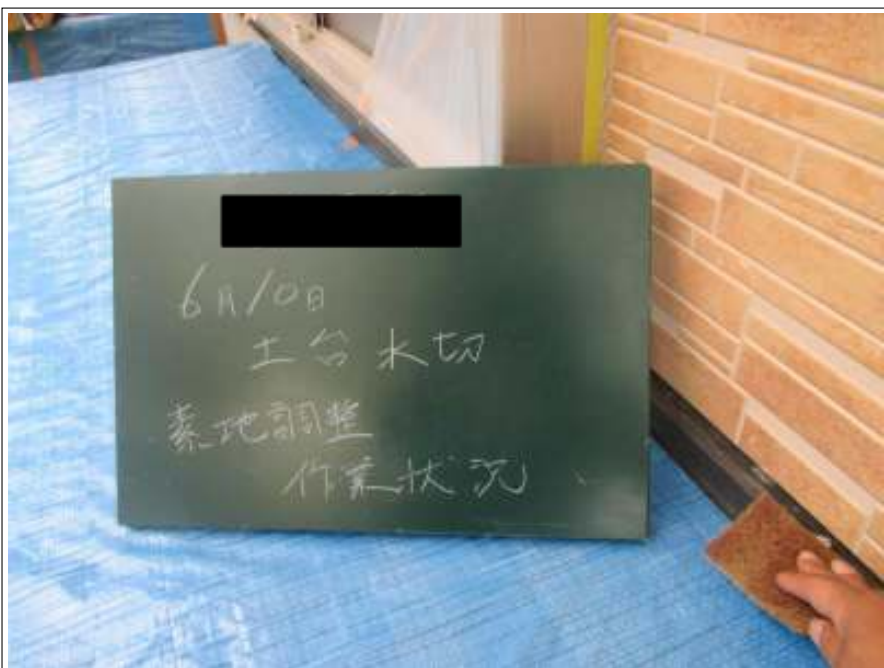 6月10日
土台水切
素地調整
作業状況